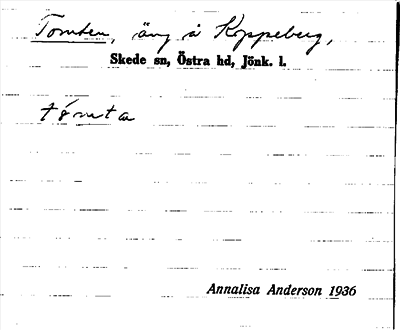 Tomten, äng å Koppeberg,
Skede sn, Östra hd, Jönk. l.
tómta
Annalisa Anderson 1936